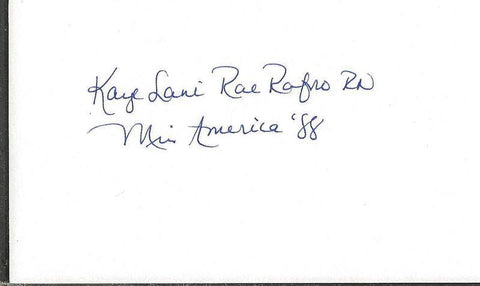 Kaye Lani Rae Rafko RN
Miss America '88